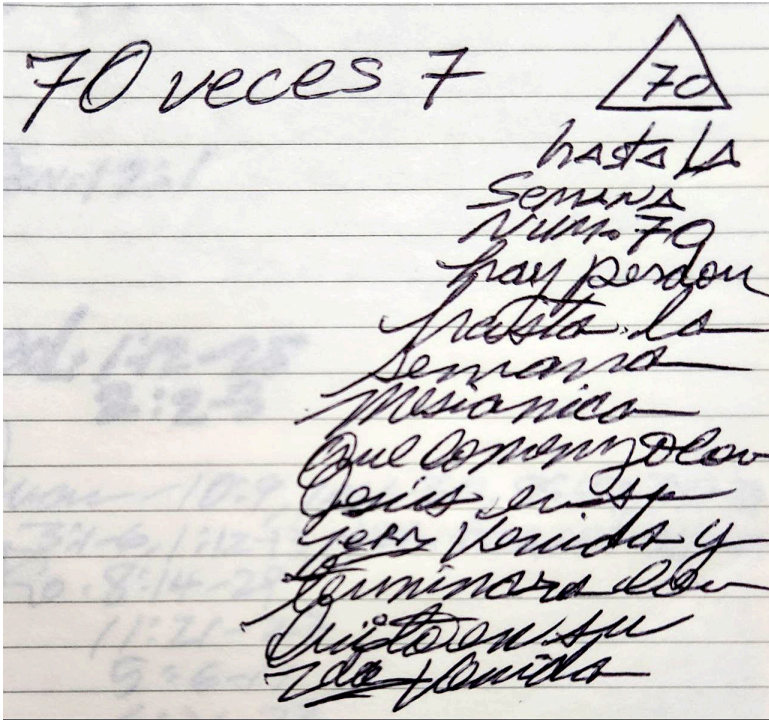 70 veces 7
70
hasta la
Semana
Num. 70
hay perdon
hasta la
semana
mesianica
Que comenzo con
Jesus en su
1era Venida y
terminara con
Cristo en su
2da Venida